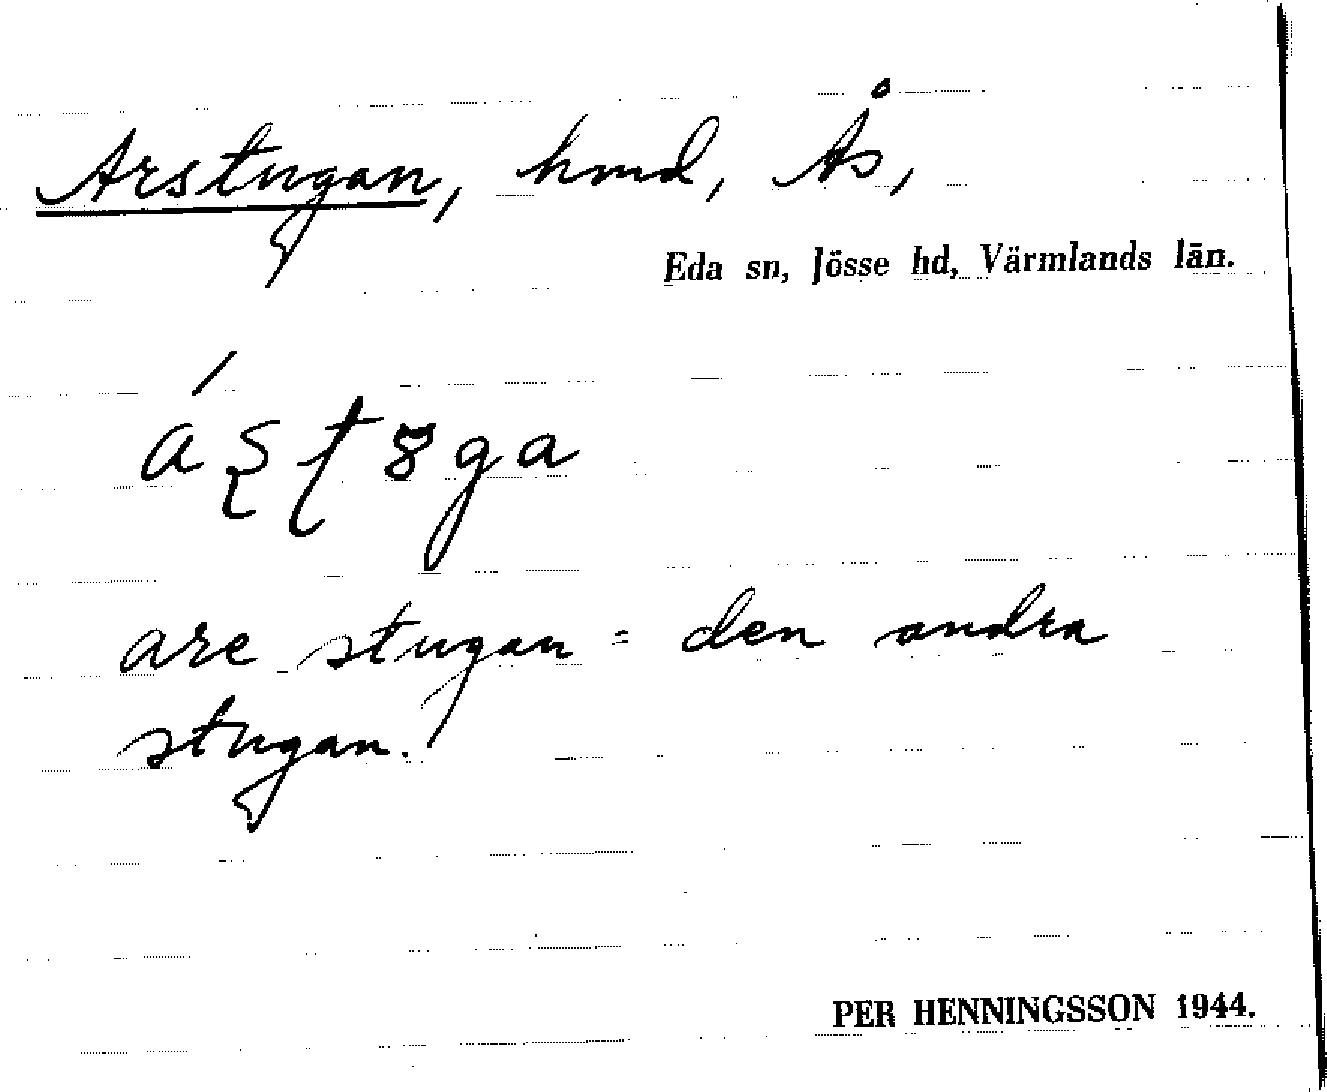 Arstugan, hmd, Ås,
Eda sn, Jösse hd, Värmlands län.
are stugan = den andra
stugan.
PER HENNINGSSON 1944.